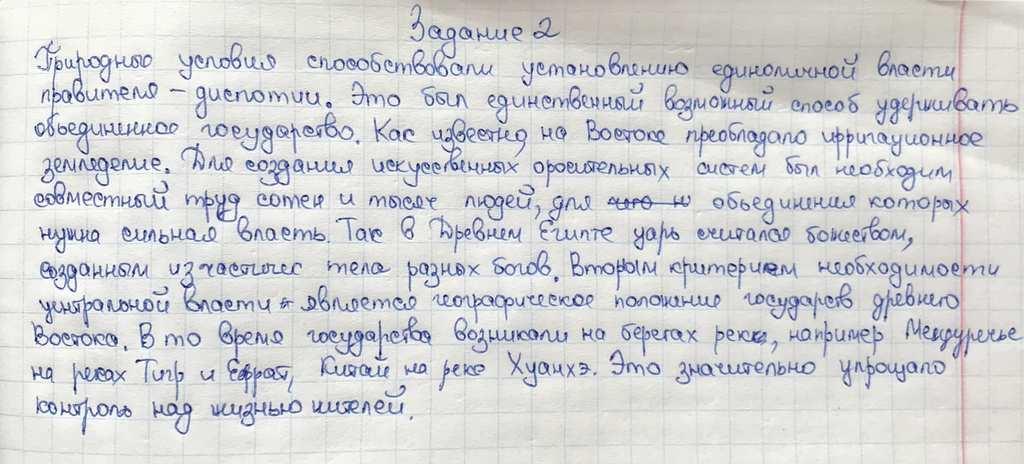 Задание 2
Природные условия способствовали установлению единоличной власти
правителя – диспотии. Это был единственный возможный способ удерживать
объединенное государство. Как известно, на Востоке преобладало ирригационное
земледелие. Для создания искусственных оросительных систем был необходим
совместный труд сотен и тысяч людей, для объединения которых
нужна сильная власть. Так в Древнем Египте царь считался божеством,
созданным из частичес тела разных богов. Вторым критерием необходимости
центральной власти является географическое положение государств древнего
Востока. В то время государства возникали на берегах реки, например Междуречье
на реках Тигр и Ефрат, Китай на реке Хуанхэ. Это значительно упрощало
контроль над жизнью жителей.